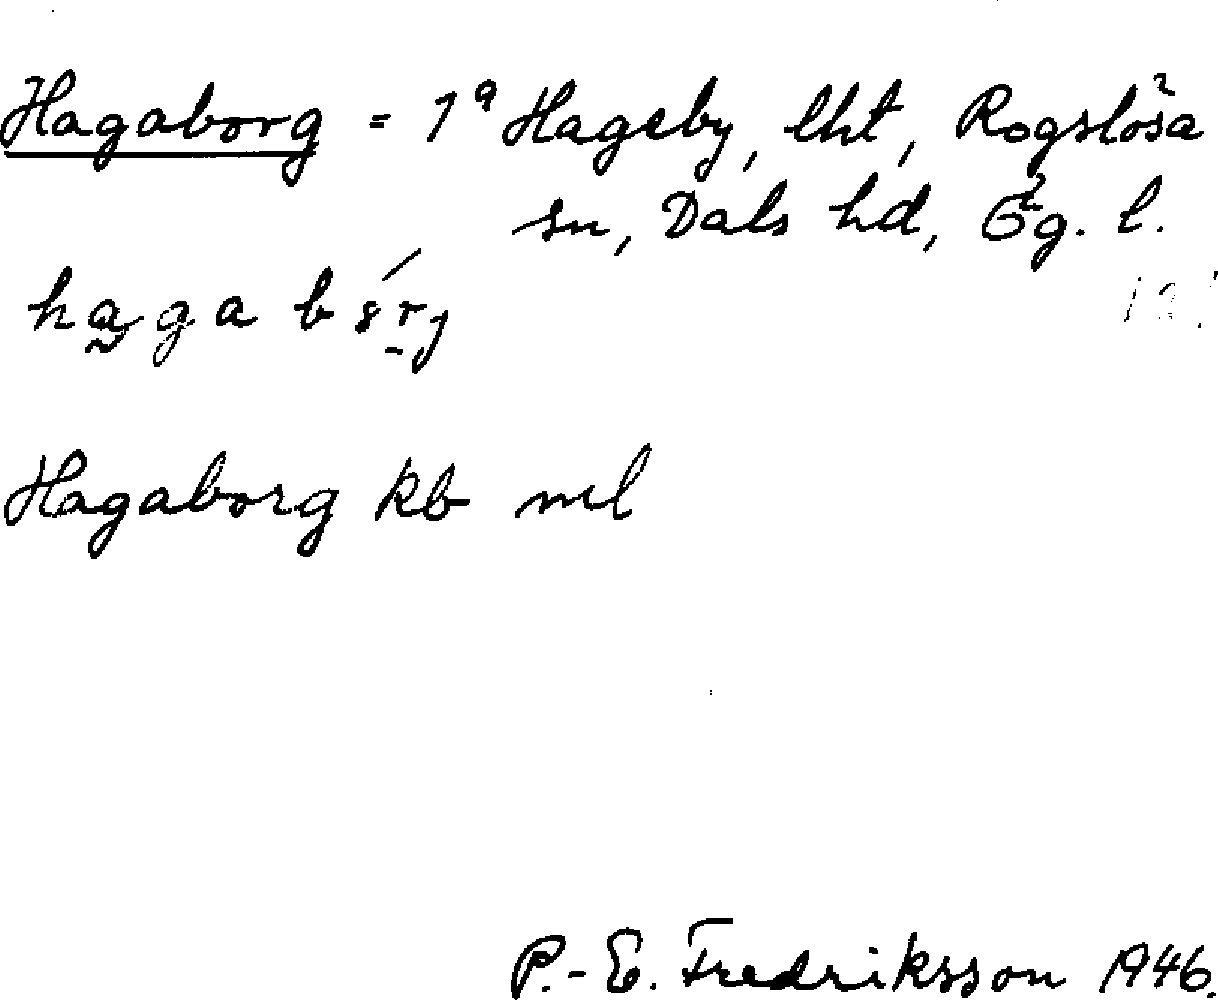 Hagaborg = 1ª Hageby, lht, Rogslösa
sn, Dals hd, Ög. l.
Hagaborg kb ml
P.-E. Fredriksson 1946.